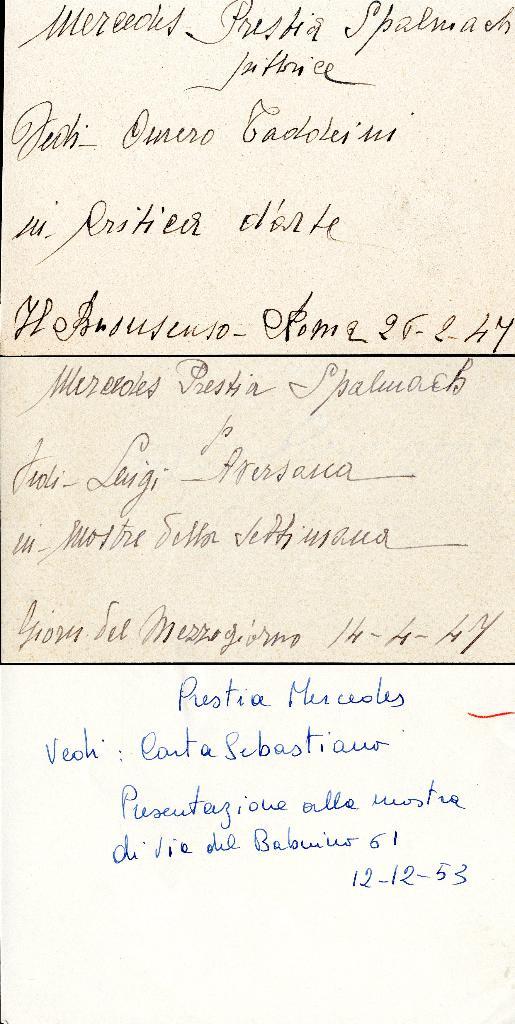 Mercedes Prestia Spalmach
pittrice
Vedi - Omero Taddeini
in Critica d'arte
Il Buonsenso - Roma 26-2-47
Mercedes Prestia Spalmach
p
Vedi - Luigi Aversana
in Mostre della settimana
Giorn. del Mezzogiorno 14-4-47
Prestia Mercedes
Vedi : Carta Sebastiano
Presentazione alla mostra
di Via del Babuino 61
12-12-53